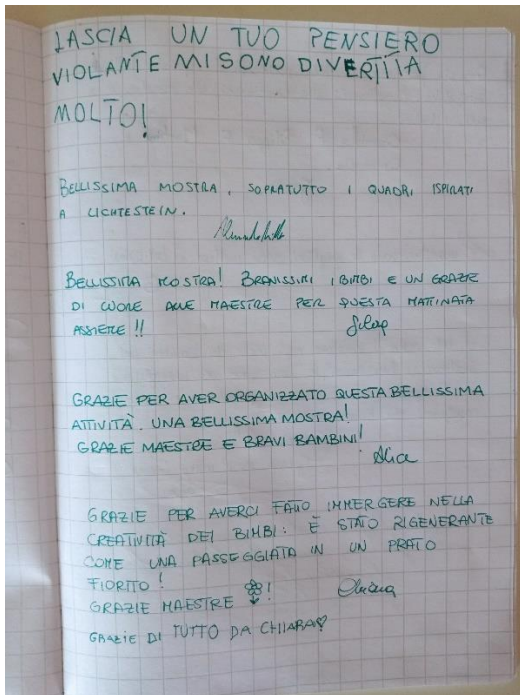 LASCIA UN TUO PENSIERO
VIOLANTE MI SONO DIVERTITA
MOLTO!
BELLISSIMA MOSTRA, SOPRATUTTO I QUADRI ISPIRATI
A LICHTESTEIN.
BELLISSIMA MOSTRA! BRAVISSIMI I BIMBI E UN GRAZIE
DI CUORE ALLE MAESTRE PER QUESTA MATTINATA
ASSIEME!!
GRAZIE PER AVER ORGANIZZATO QUESTA BELLISSIMA
ATTIVITÀ. UNA BELLISSIMA MOSTRA!
GRAZIE MAESTRE E BRAVI BAMBINI!
Alice
GRAZIE PER AVERCI FATTO IMMERGERE NELLA
CREATIVITÀ DEI BIMBI: È STATO RIGENERANTE
COME UNA PASSEGGIATA IN UN PRATO
FIORITO!
GRAZIE MAESTRE !
GRAZIE DI TUTTO DA CHIARA